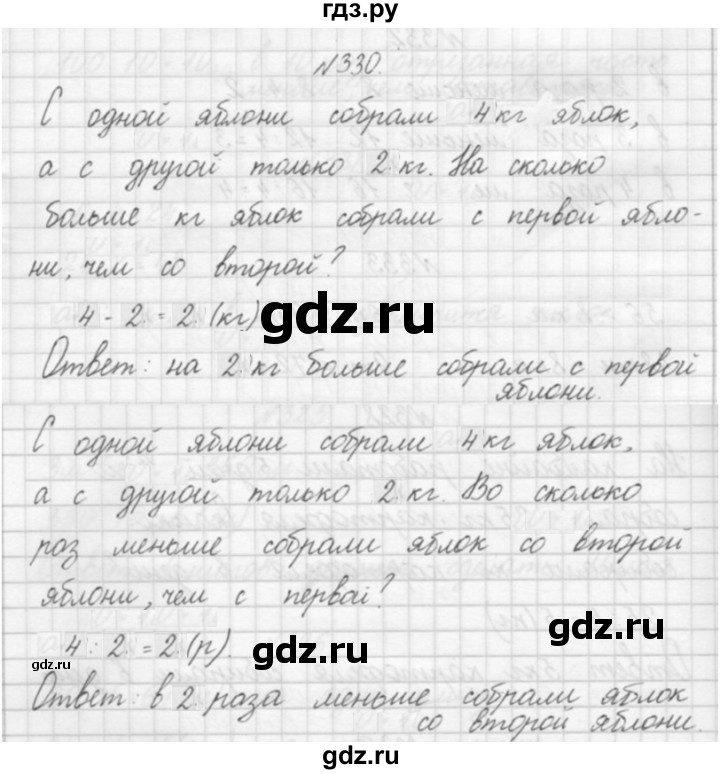 гдз.ру
№330.
С одной яблони собрали 4 кг яблок,
а с другой только 2 кг. На сколько
больше кг яблок собрали с первой ябло-
ни, чем со второй?
4 - 2 = 2 (кг)
gdz.ru
Ответ: на 2 кг больше собрали с первой
яблони.
С одной яблони собрали 4 кг яблок,
а с другой только 2 кг. Во сколько
раз меньше собрали яблок со второй
яблони, чем с первой?
gdz.ru
4 : 2 = 2 (р).
gdz.ru
gdz.ru
Ответ: в 2 раза меньше собрали яблок
со второй яблони.
gdz.ru